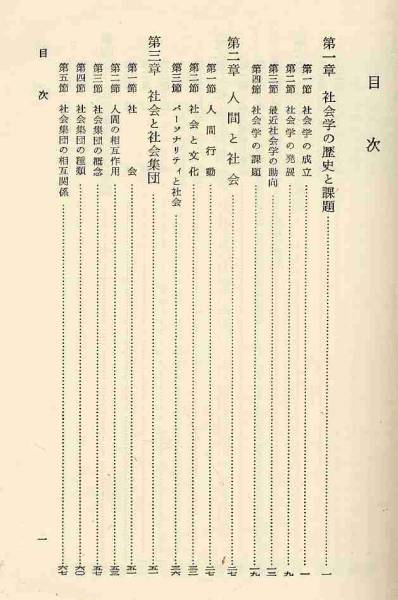 目次
第一章 社会学の歴史と課題……一
第一節 社会学の成立……一
第二節 社会学の発展……九
第三節 最近社会学の動向……一三
第四節 社会学の課題……一九
第二章 人間と社会……二七
第一節 人間行動……二七
第二節 社会と文化……三一
第三節 パーソナリティと社会……三六
第三章 社会と社会集団……五一
第一節 社会……五一
第二節 人間の相互作用……五三
第三節 社会集団の概念……五七
第四節 社会集団の種類……六〇
第五節 社会集団の相互関係……六七
目次 一